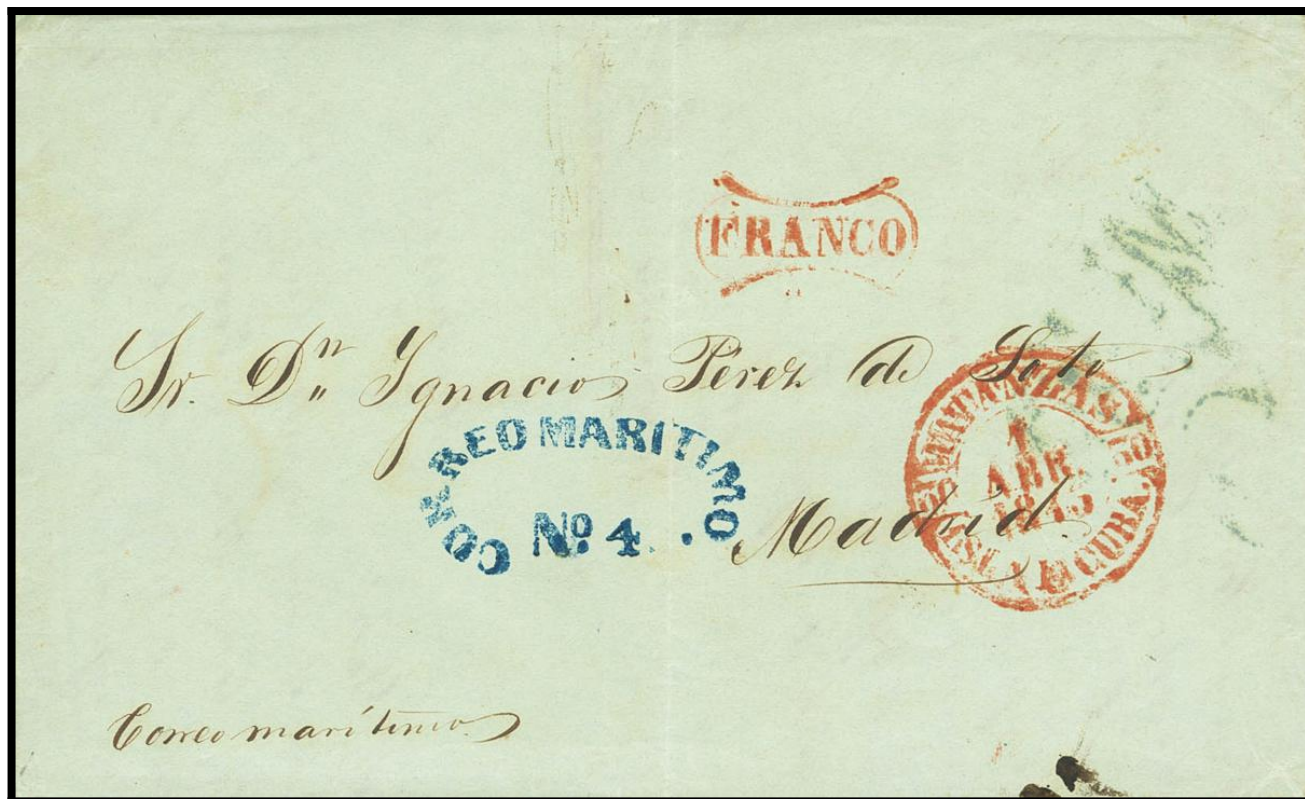 FRANCO
Sr. Dn Ignacio Pérez de Soto
CORREO MARITIMO
Nº 4.
Madrid
MATANZAS
1
ABR.
ISLA DE CUBA.
Correo marítimo